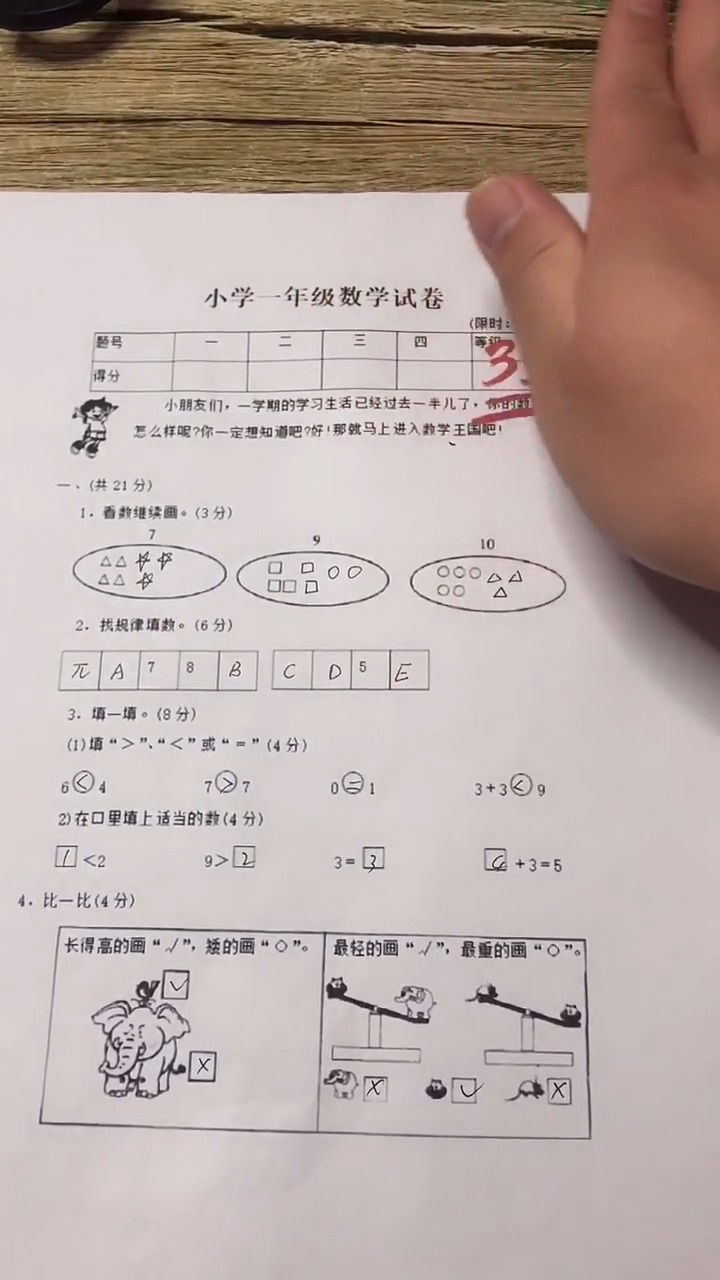 小学一年级数学试卷
(限时:
题号 一 二 三 四 等级
得分 3.
小朋友们，一学期的学习生活已经过去一半儿了，你的数
怎么样呢?你一定想知道吧?好!那就马上进入数学王国吧!
一、(共21分)
1．看数继续画。(3分)
7 9 10
2．找规律填数。(6分)
π A 7 8 B C D 5 E
3．填一填。(8分)
(1)填“＞”、“＜”或“＝”(4分)
6<4 7>7 0=1 3+3<9
2)在口里填上适当的数(4分)
1<2 9>2 3=3 +3=5
4．比一比(4分)
长得高的画“√”，矮的画“○”。 最轻的画“√”，最重的画“○”。
√
×
× √ ×